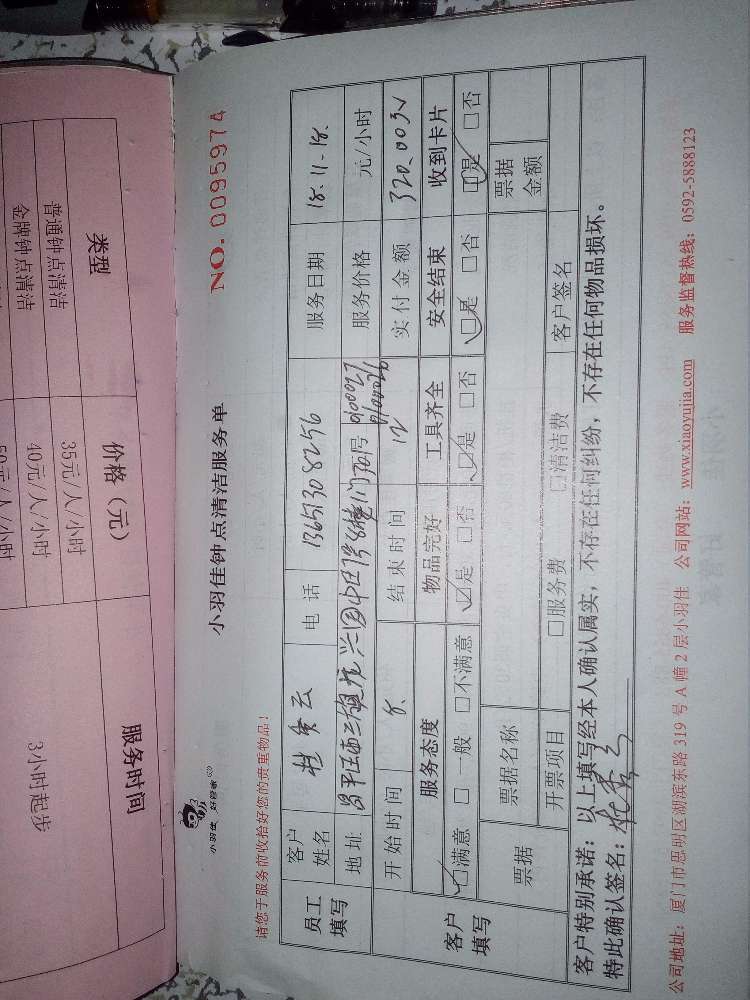 类型
价格（元）
服务时间
普通钟点清洁
35元/人/小时
3小时起步
金牌钟点清洁
40元/人/小时
NO. 0095974
小羽佳钟点清洁服务单
小羽佳 好管家
请您于服务前收拾好您的贵重物品！
员工填写
客户姓名
电话
13651308256
服务日期
18.11-18.
地址
服务价格
元/小时
开始时间
8.
结束时间
12
实付金额
320.00
客户填写
服务态度
物品完好
工具齐全
安全结束
收到卡片
☑满意 □一般 □不满意
☑是 □否
☑是 □否
☑是 □否
☑是 □否
票据
票据名称
票据金额
开票项目
□服务费 □清洁费
客户签名
客户特别承诺：以上填写经本人确认属实，不存在任何纠纷，不存在任何物品损坏。
特此确认签名：
公司地址：厦门市思明区湖滨东路319号A幢2层小羽佳 公司网站：www.xiaoyujia.com 服务监督热线：0592-5888123